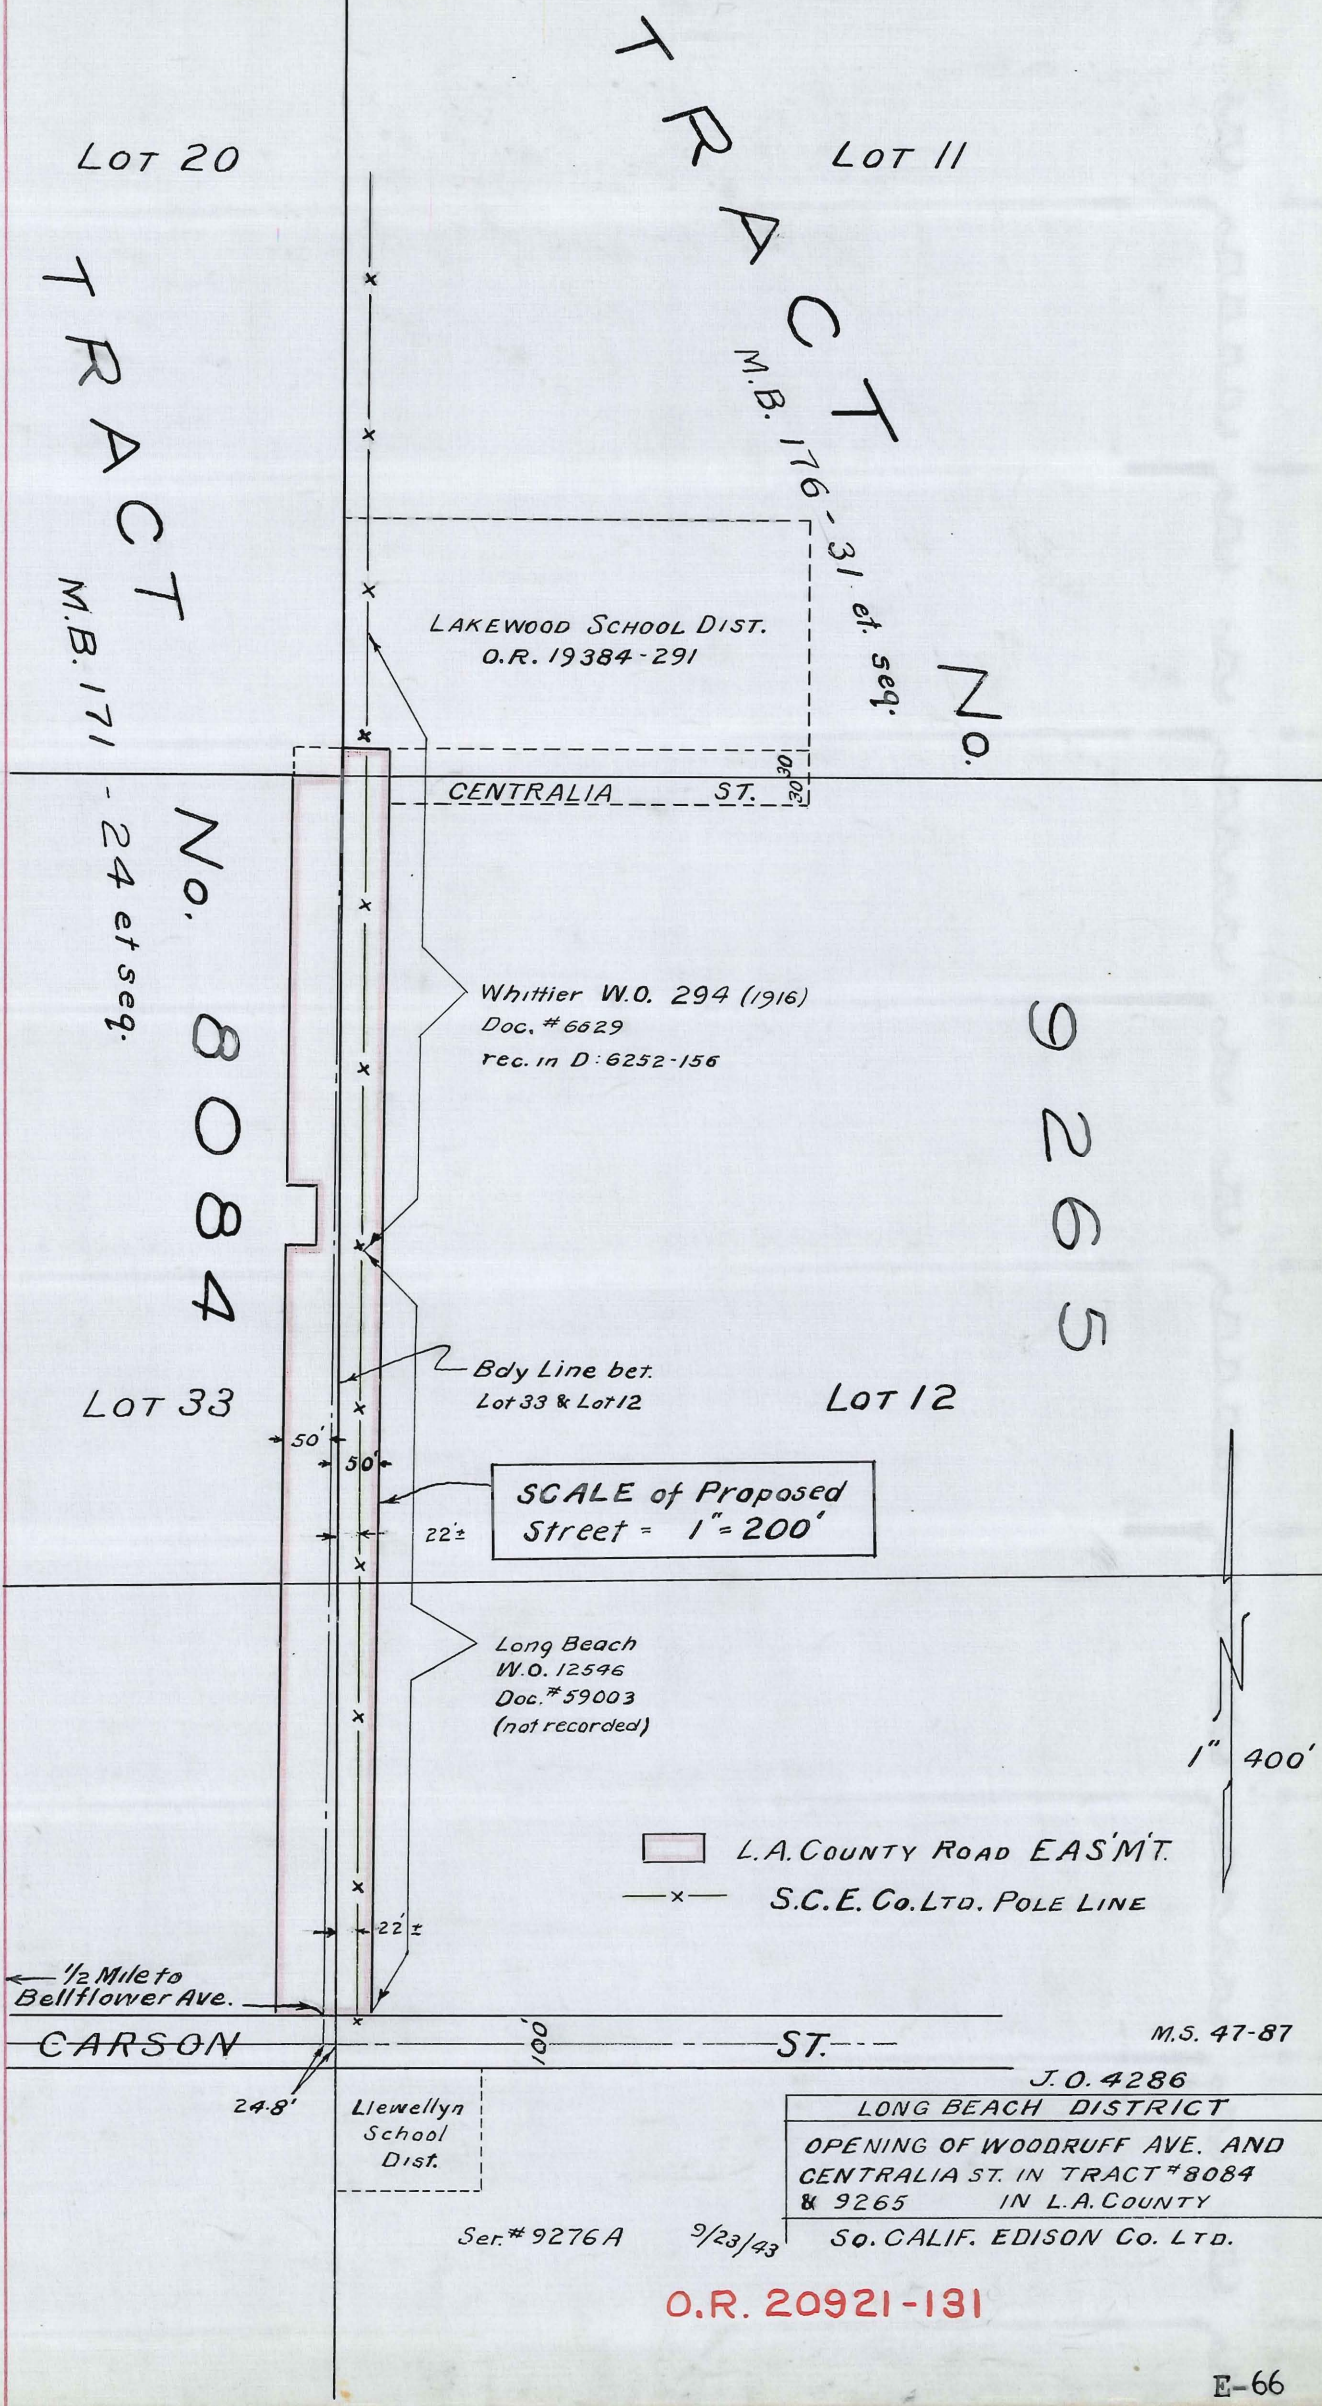 TRACT No. 9265
M.B. 176-31 et. seq.
LOT 20
LOT 11
TRACT No. 8084
M.B. 171-24 et seq.
LAKEWOOD SCHOOL DIST.
O.R. 19384-291
CENTRALIA ST.
30'
30'
Whittier W.O. 294 (1916)
Doc. #6629
rec. in D:6252-156
Bdy Line bet.
Lot 33 & Lot 12
LOT 33
LOT 12
50'
50'
SCALE of Proposed
Street = 1"=200'
22'±
Long Beach
W.O. 12546
Doc.#59003
(not recorded)
N
1" 400'
L.A. COUNTY ROAD EAS'M'T.
x S.C.E. Co. LTD. POLE LINE
22'±
1/2 Mile to
Bellflower Ave.
CARSON ST.
100'
24.8'
Llewellyn
School
Dist.
M.S. 47-87
J.O. 4286
LONG BEACH DISTRICT
OPENING OF WOODRUFF AVE. AND
CENTRALIA ST. IN TRACT #8084
& 9265 IN L.A. COUNTY
SO. CALIF. EDISON CO. LTD.
Ser.# 9276A 9/23/43
O.R. 20921-131
E-66